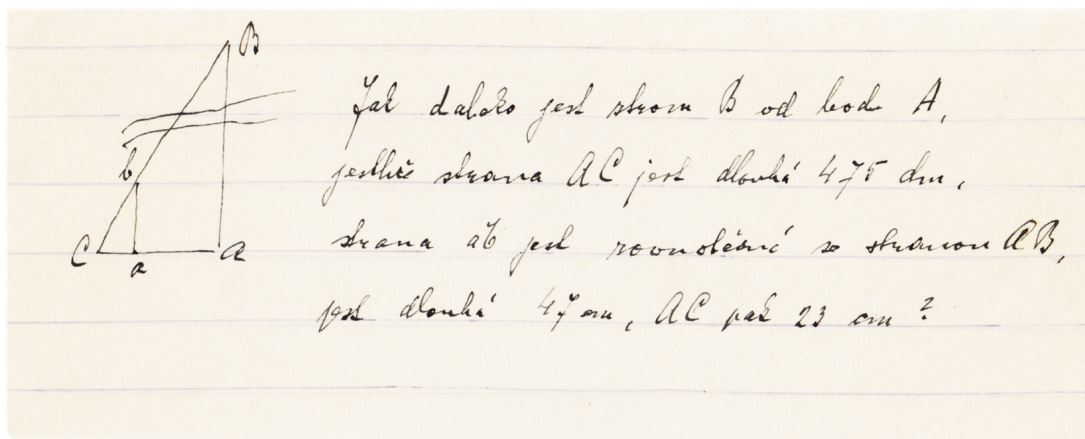 B
b
C a A
Jak daleko jest strom B od bodu A,
jestliže strana AC jest dlouhá 475 dm,
strana ab jest rovnoběžná se stranou AB,
jest dlouhá 47 cm, AC pak 23 cm?